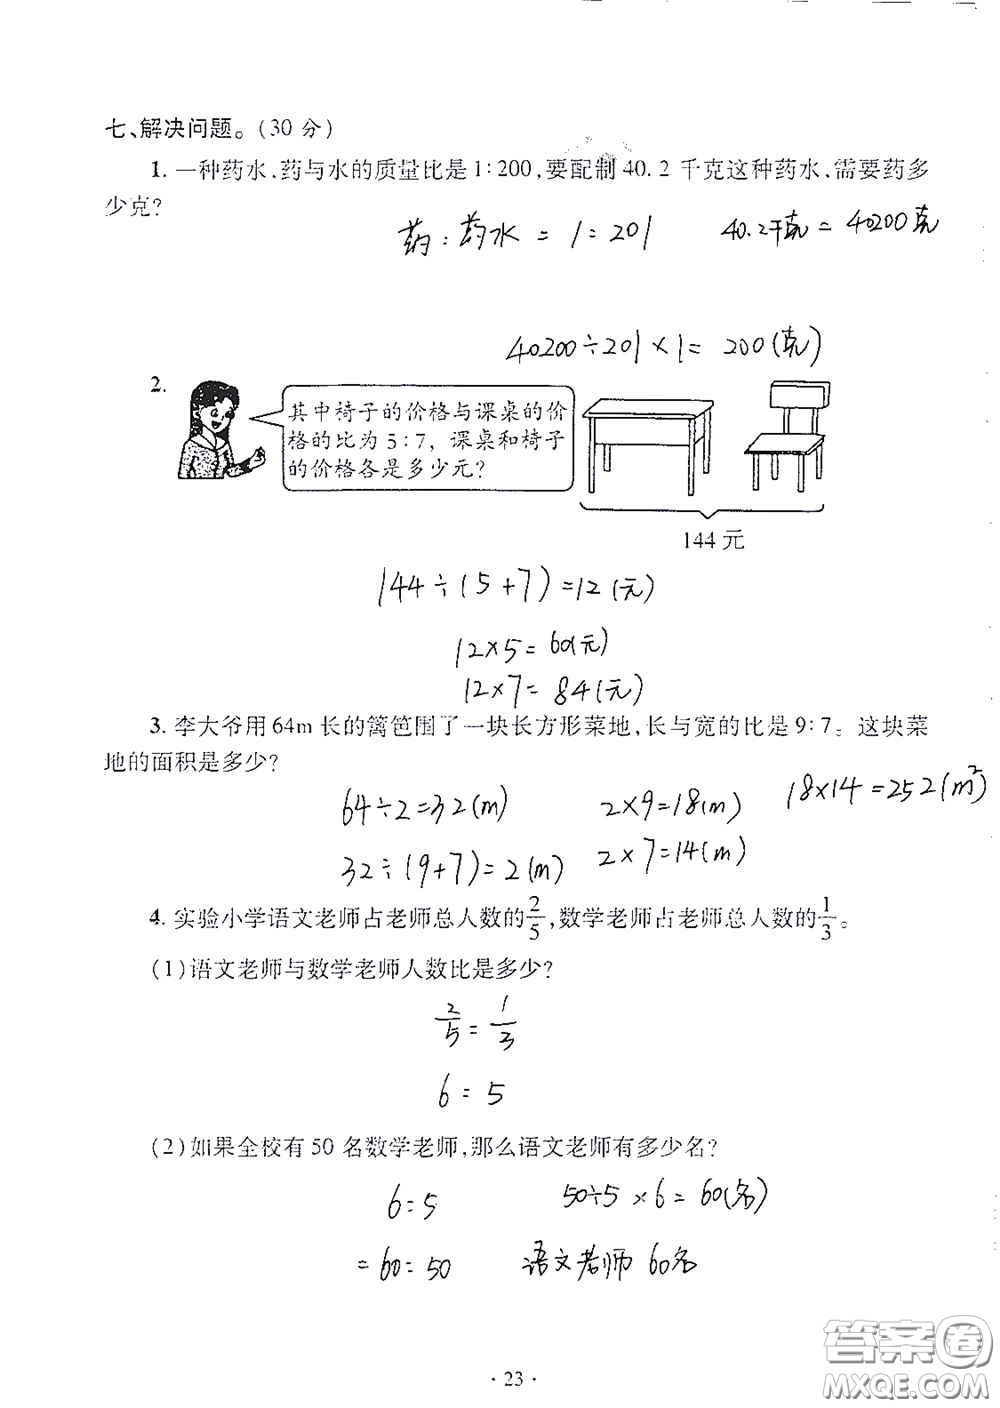 七、解决问题。(30 分)
1. 一种药水,药与水的质量比是 1∶200,要配制 40. 2 千克这种药水,需要药多
少克?
药：药水 = 1：201
40.2千克 = 40200克
40200÷201×1= 200(克)
2.
其中椅子的价格与课桌的价
格的比为 5∶7，课桌和椅子
的价格各是多少元？
144 元
144÷(5+7)=12(元)
12×5=60(元)
12×7=84(元)
3. 李大爷用 64m 长的篱笆围了一块长方形菜地,长与宽的比是 9∶7。这块菜
地的面积是多少?
64÷2=32(m)
2×9=18(m)
18×14=252(m²)
32÷(9+7)=2(m)
2×7=14(m)
4. 实验小学语文老师占老师总人数的2/5,数学老师占老师总人数的1/3。
(1)语文老师与数学老师人数比是多少?
2/5：1/3
6：5
(2)如果全校有 50 名数学老师,那么语文老师有多少名?
6：5
50÷5×6=60(名)
=60：50
语文老师 60名
答案卷
MXQE.COM
· 23 ·